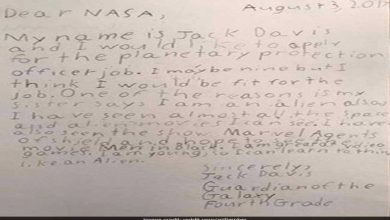 Dear NASA,
August 3, 2017
My name is Jack Davis
and I would like to apply
for the planetary protection
officer job. I may be nine but I
think I would be fit for the
job. One of the reasons is my
sister says I am an alien also
I have seen almost all the space
and alien movies I can see. I have
also seen the show Marvel Agents
of Shield and hope
movie Men in Black. I am great at video
games. I am young, so I can learn to think
like an Alien.
Sincerely,
Jack Davis
Guardian of the
Galaxy
Fourth Grade